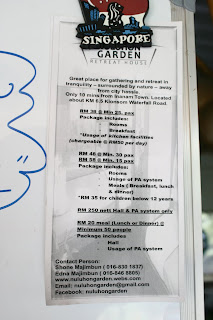 SINGAPORE
GARDEN
RETREAT HOUSE
Great place for gathering and retreat in
tranquility - surrounded by nature - away
from city hassle.
Only 10 mins from Inanam Town. Located
about KM 6.5 Kionsom Waterfall Road.
RM 38 @ Min 25 pax
Package includes:
- Rooms
- Breakfast
*Usage of kitchen facilities
(chargeable @ RM50 per day)
RM 48 @ Min. 30 pax
RM 58 @ Min. 15 pax
Package includes:
- Rooms
- Usage of PA system
- Meals ( Breakfast, lunch
& dinner)
*RM 35 for children below 12 years
RM 250 nett Hall & PA system only
RM 20 meal (Lunch or Dinner) @
Minimum 50 people
Package includes
- Hall
- Usage of PA system
Contact Person:
Shane Majimbun ( 016-830 1837)
Edna Majimbun ( 016-846 8805)
www.nuluhongarden.webs.com
Email: nuluhongarden@gmail.com
Facebook: nuluhongarden